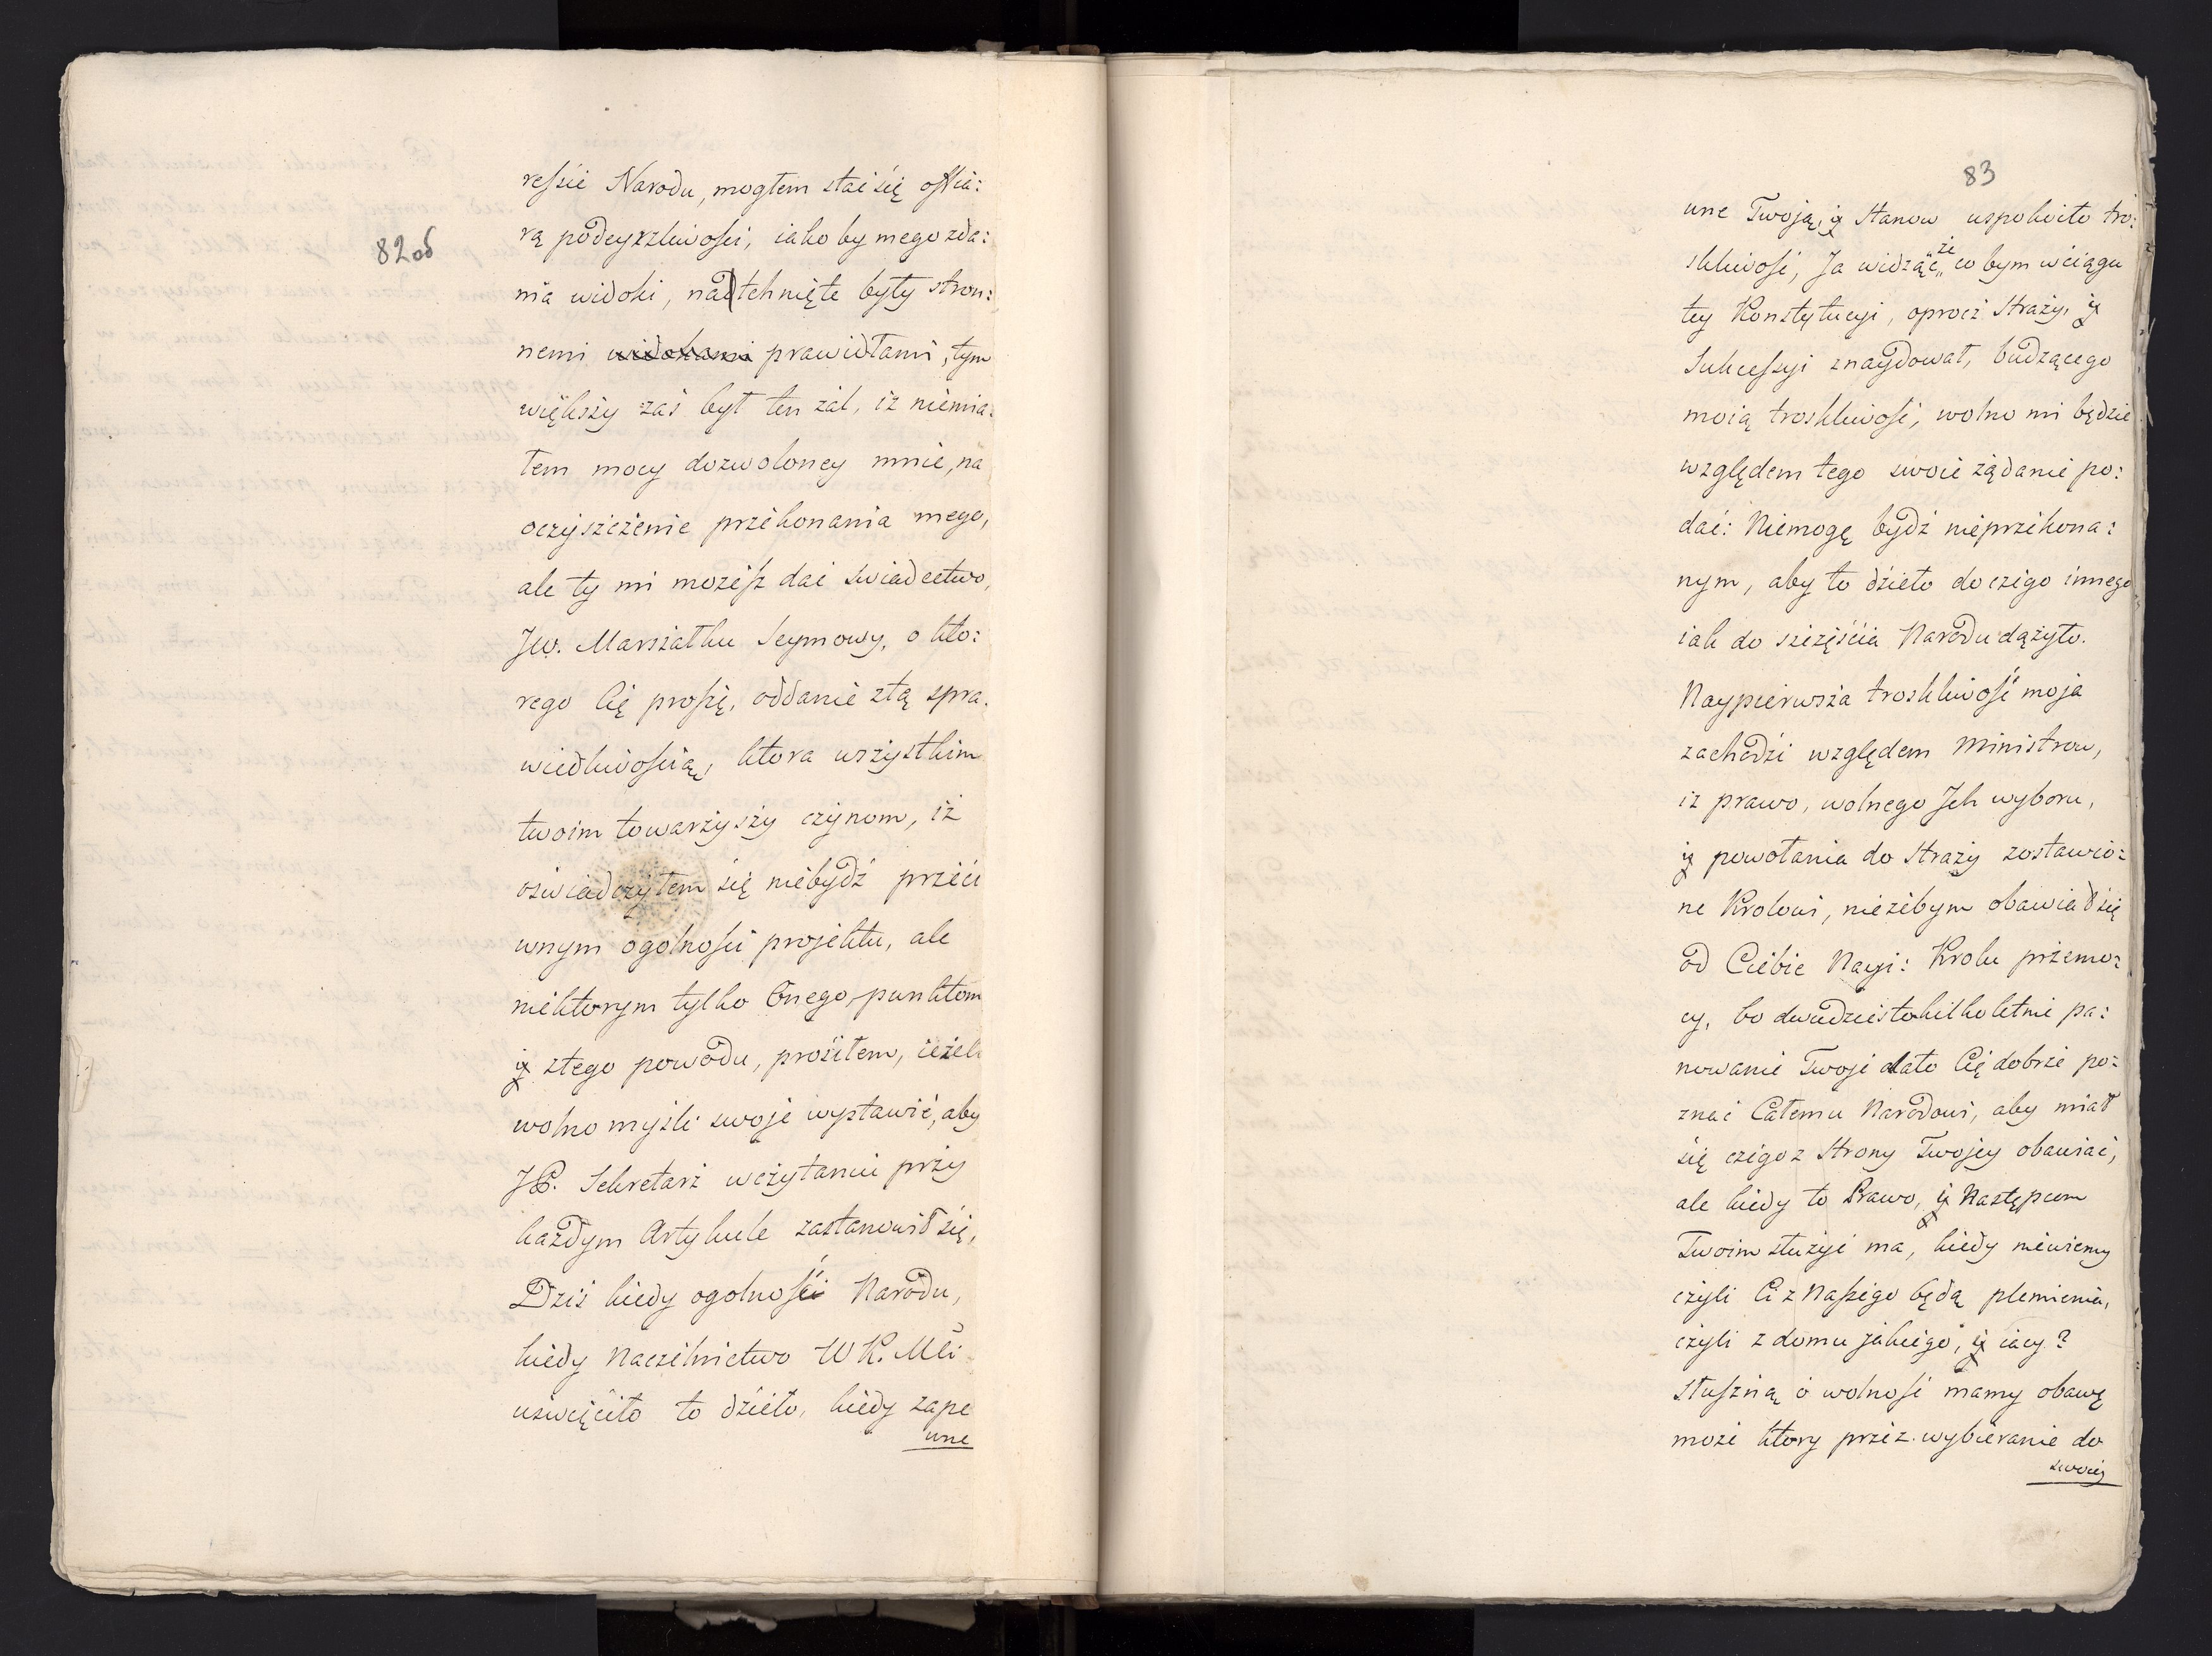 82об
resſie Narodu, mogłem stać się offia:
rą podeyrzliwości, iakoby mego zda:
nia widoki, nadtchnięte były stron:
nemi widokami prawidłami, tym
większy zaś był ten żal, iż niemia:
łem mocy dozwoloney mnie, na
oczyszczenie przekonania mego,
ale ty mi możesz dać swiadectwo,
JW. Marszałku Seymowy, o kto:
rego Cię proszę, oddanie ztą spra:
wiedliwością, ktora wszystkim
twoim towarzyszy czynom, iż
oświadczyłem się niebydź przeci
wnym ogolności projektu, ale
niektorym tylko Onego punktom
y ztego powodu, prosiłem, ieżeli
wolno myśli swoje wystawić, aby
JP. Sekretarz wczytaniu przy
każdym Artykule zastanowił się,
Dziś kiedy ogolności Narodu,
kiedy Naczelnictwo W K. Mći
uświęciło to dzieło, kiedy zape
wne
83
wne Twoją, y Stanow uspokoiło tro:
skliwość, Ja widząc „że„ co bym wciągu
tey Konstytucyi, oprocz Straży, y
Sukcessyi znaydował, budzącego
moią troskliwość, wolno mi będzie
względem tego swoie żądanie po:
dać: Niemogę bydź nieprzekona:
nym, aby to dzieło do czego innego
iak do szczęścia Narodu dążyło.
Naypierwsza troskliwość moja
zachodzi względem Ministrow,
iż prawo, wolnego Jch wyboru,
y powołania do Straży zostawio:
ne Krolowi, nieżebym obawiał się
od Ciebie Nayj: Krolu przemo:
cy, bo dwudziestokilkoletnie pa:
nowanie Twoje dało Cię dobrze po:
znać Całemu Narodowi, aby miał
się czego z Strony Twojey obawiać,
ale kiedy to Prawo, y Następcom
Twoim służyć ma, kiedy niewiemy
czyli Ci z Naszego będą plemienia,
czyli z domu jakiego, y iacy?
Słuszną o wolność mamy obawę
może ktory przez wybieranie do
swoiey